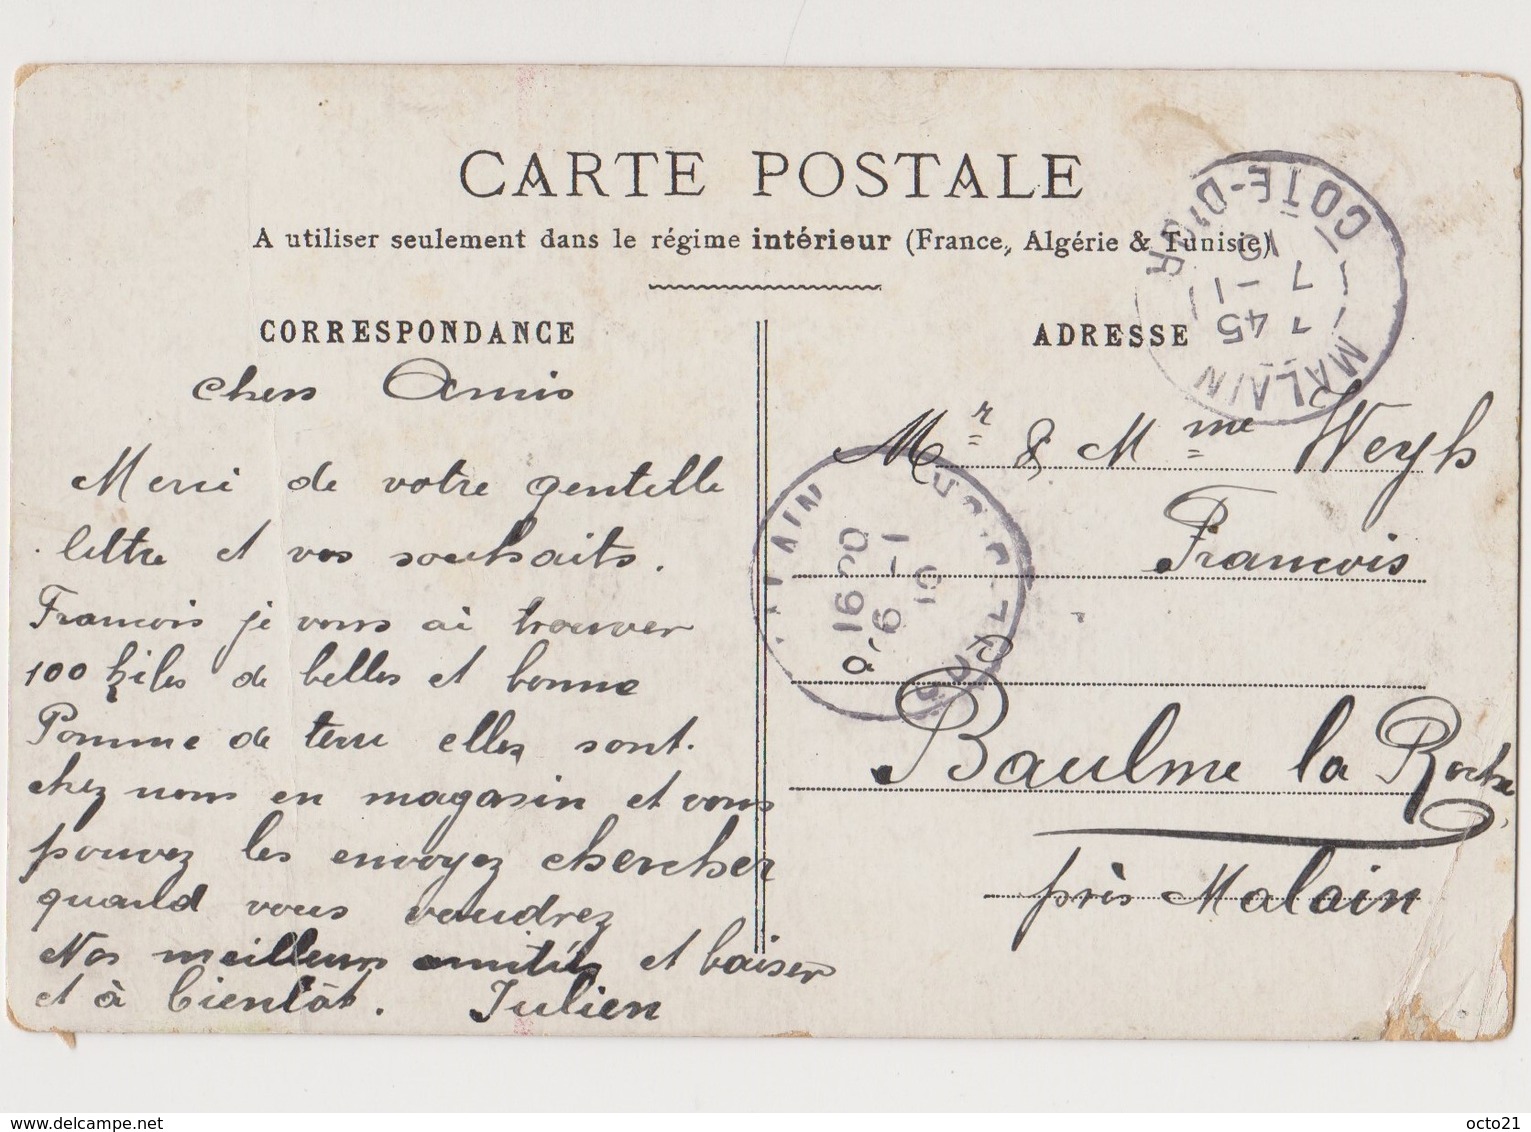 CARTE POSTALE
A utiliser seulement dans le régime intérieur (France, Algérie & Tunisie)
CORRESPONDANCE
chers Amis
Merci de votre gentille
lettre et vos souhaits.
Francois je vous ai trouver
100 kilos de belles et bonne
Pomme de terre elles sont.
chez nous en magasin et vous
pouvez les envoyez chercher
quand vous voudrez
Nos meilleurs amitiés et baiser
et à bientôt. Julien
ADRESSE
Mr & Mme Weyh
Francois
Baulme la Roche
près Malain
MALAIN
COTE-D'OR
7 45
7 -1
10
16
6 -1
10
www.delcampe.net
octo21